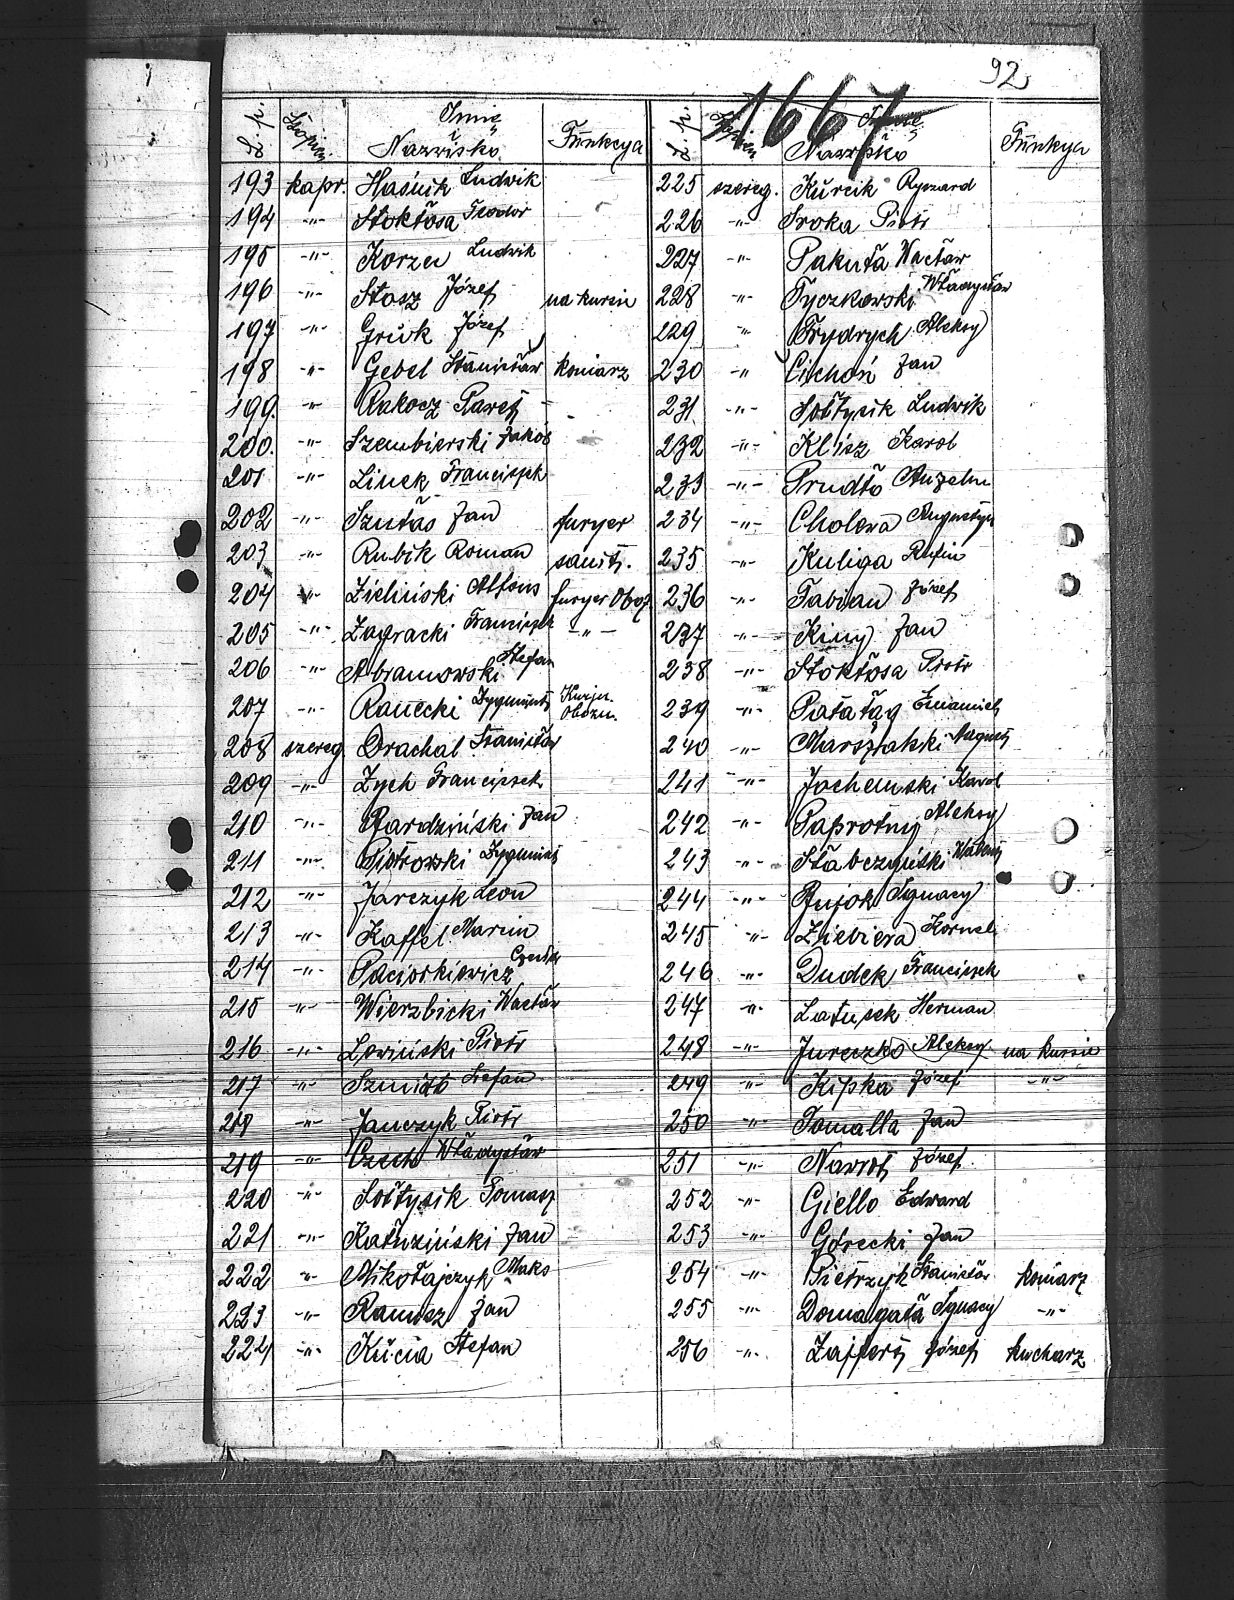 92
1667
L. p. Stopień Imię i Nazwisko Funkcya
193 kapr. Haśnik Ludwik
194 -"- Stokłosa Teodor
195 -"- Korzec Ludwik
196 -"- Stasz Józef na kursie
197 -"- Józef
198 -"- Gebel Stanisław koniarz
199. -"- Rakocz Paweł
200. -"- Szembierski Jakób
201 -"- Linek Franciszek
202 -"- Szutas Jan furyer
203 -"- Rubik Roman sanit.
204 -"- Zieliński Alfons furyer Oboz
205 -"- Zagracki Franciszek -"-
206 -"- Abramowski Stefan
207 -"- Ranecki Zygmunt
208 szereg. Drachal Stanisław
209 -"- Zych Franciszek
210 -"- Bardziński Jan
211 -"- Piotrowski Zygmunt
212 -"- Jarczyk Leon
213 -"- Kaffel Marcin
214 -"- Paciorkiewicz
215 -"- Wierzbicki Wacław
216 -"- Lewiński Piotr
217 -"- Szmidt Stefan
218 -"- Janczyk Piotr
219 -"- Czech Władysław
220 -"- Sołtysik Tomasz
221 -"- Kałuziński Jan
222 -"- Mikołajczyk Maks
223 -"- Ramisz Jan
224 -"- Kucia Stefan
L. p. Stopień Imię i Nazwisko Funkya
225 szereg. Kurcik Ryszard
226 -"- Sroka Piotr
227 -"- Pakuła Wacław
228 -"- Tyczkowski Władysław
229 -"- Frydrych Aleksy
230 -"- Cichoń Jan
231. -"- Sołtysik Ludwik
232 -"- Klisz Karol
233 -"- Prudło Anzelm
234 -"- Cholewa Augustyn
235. -"- Kuliga Rufin
236 -"- Fabian Józef
237 -"- Kiny Jan
238 -"- Stokłosa Piotr
239 -"- Pałatąg
240 -"- Marszalski August
241 -"- Jochemski Karol
242 -"- Paprotny Aleksy
243 -"- Słabczyński
244 -"- Bujok Ignacy
245 -"- Ziebiera Kornel
246 -"- Dudek Franciszek
247 -"- Latusek Herman
248 -"- Jureczko Aleksy na kursie
249 -"- Kipka Józef -"-
250 -"- Tomalla Jan
251 -"- Nawrot Józef
252 -"- Giello Edward
253 -"- Górecki Jan
254 -"- Pietrzyk Stanisław koniarz
255 -"- Domagała Ignacy -"-
256 -"- Zaffert Józef kucharz